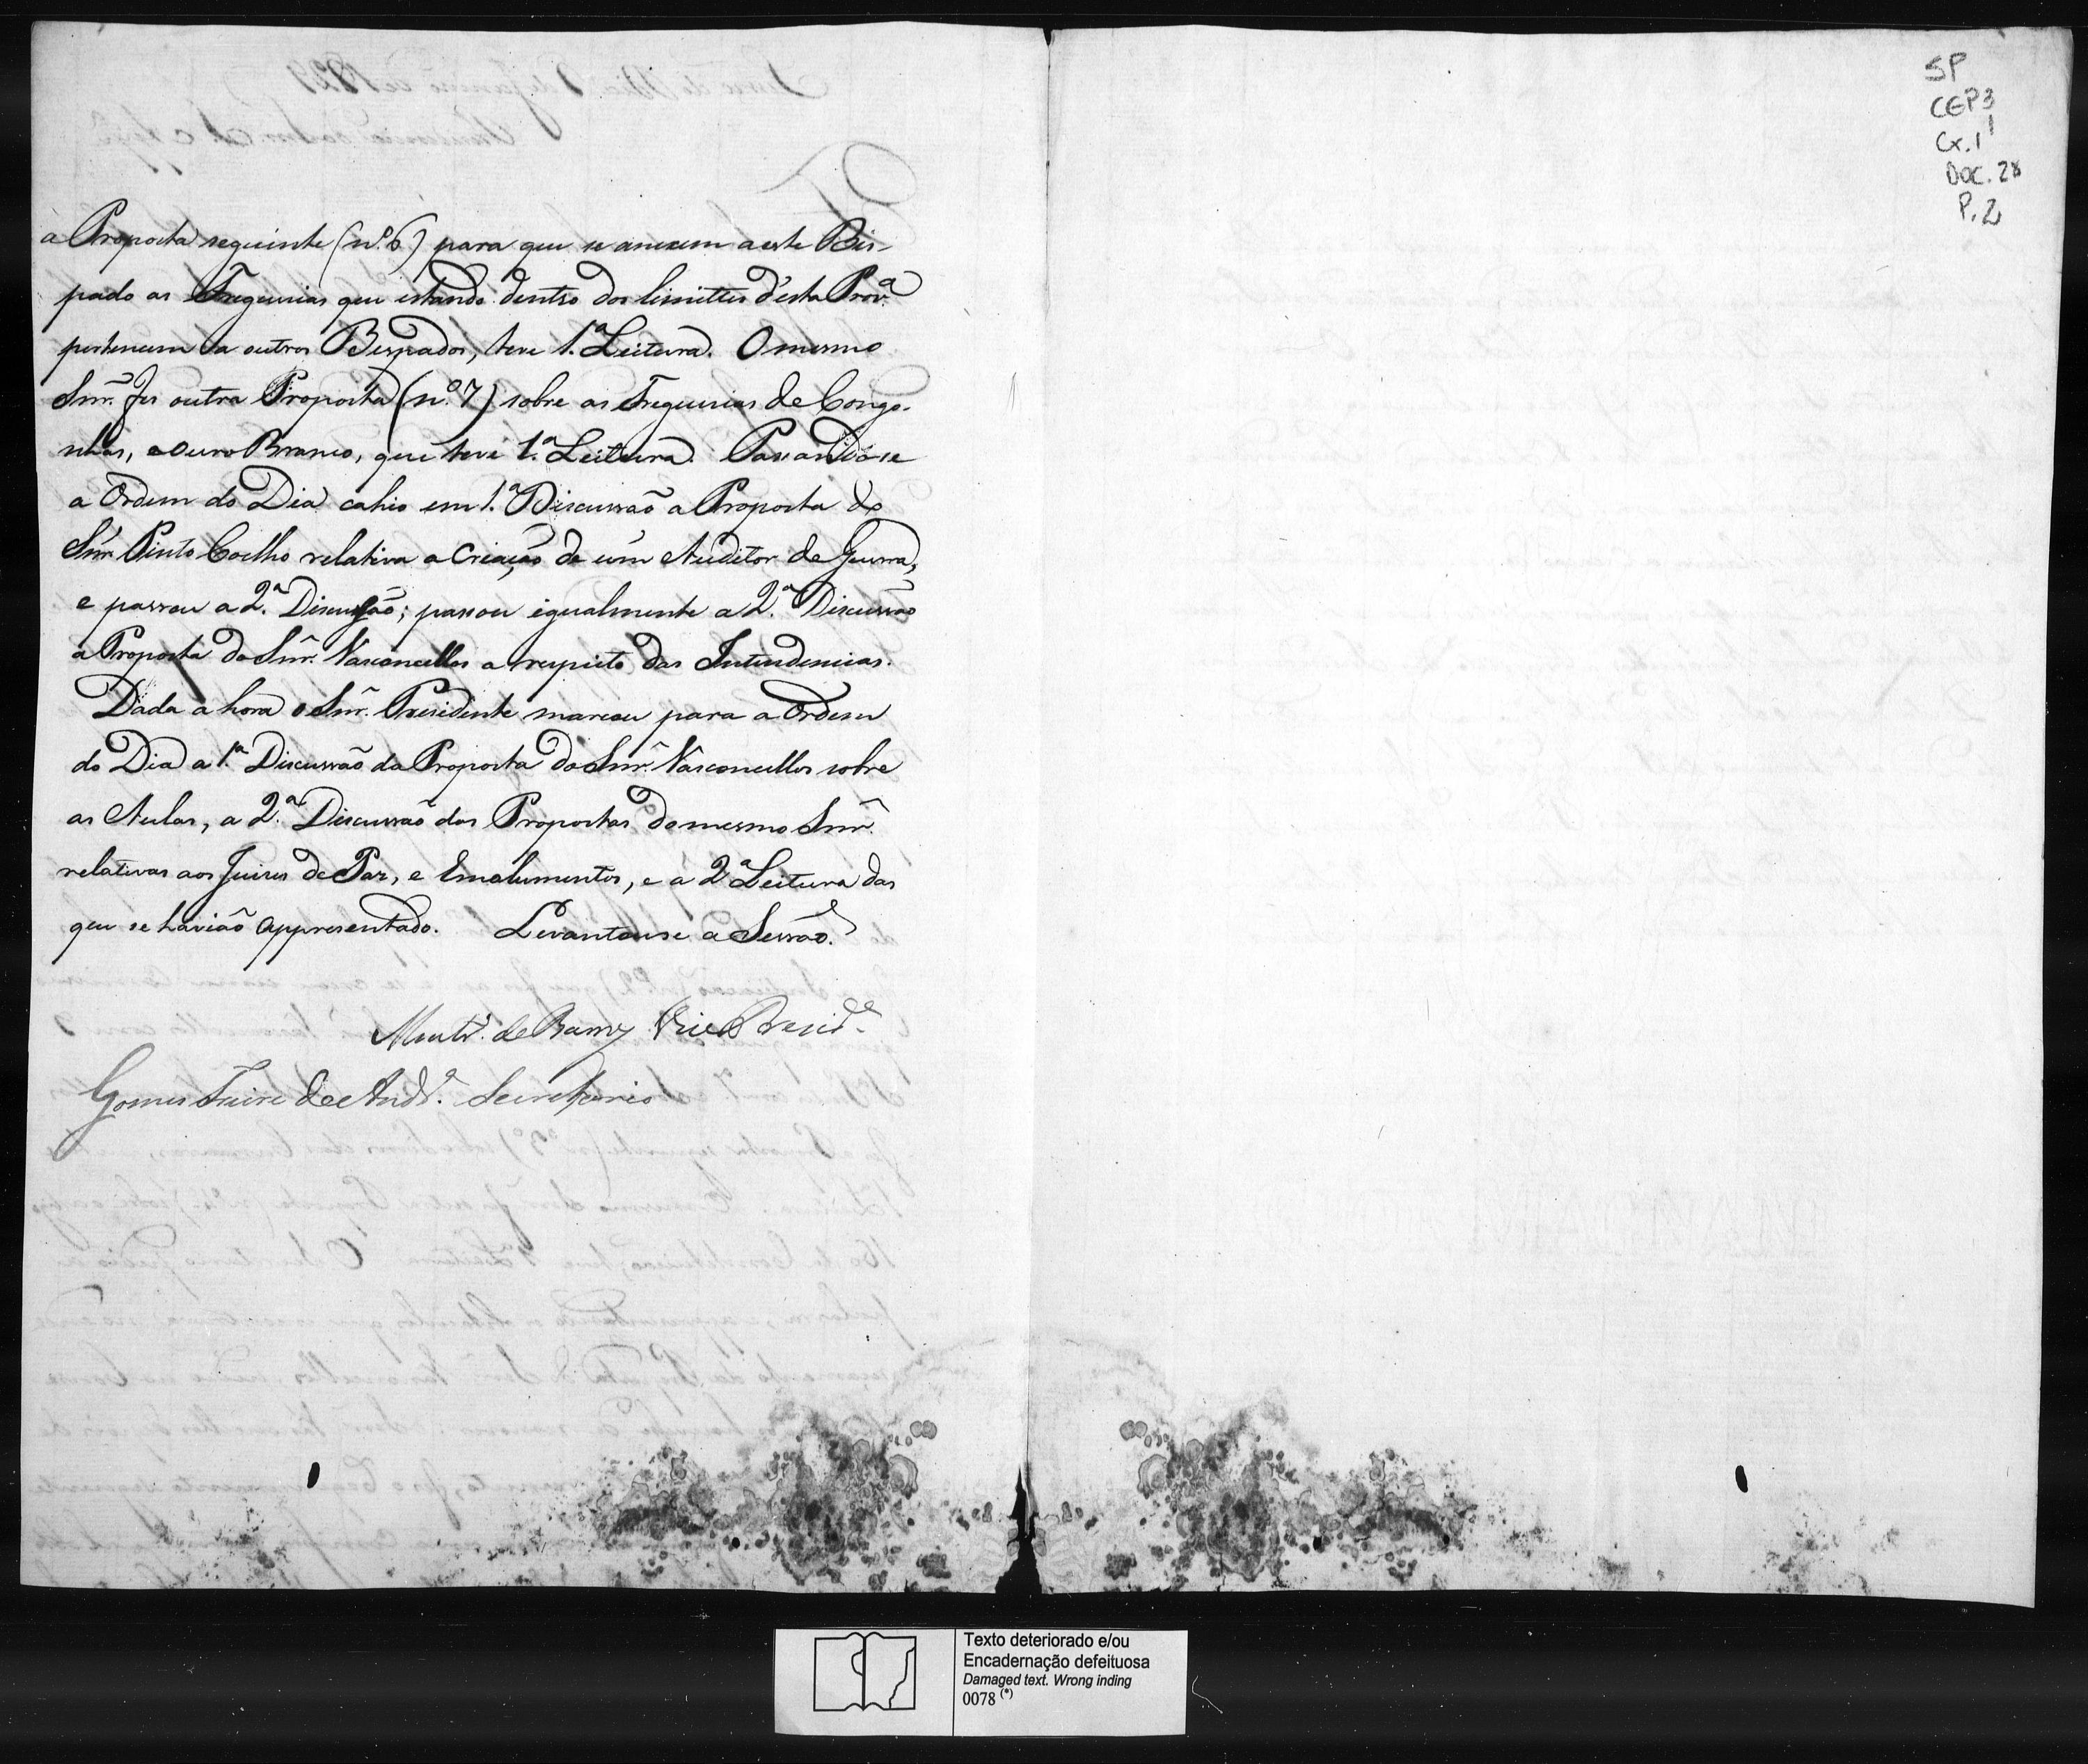 a Proposta seguinte (nº 6) para que se anexem a este Bis-
pado as Freguesias que estando dentro dos limittes d'esta Provª
pertencem a outros Bispados, teve 1.ª Leitura. O mesmo
Snr. fes outra Proposta (nº 7) sobre as Freguesias de Congo-
nhas, e Ouro Branco, que teve 1.ª Leitura. Passando-se
a Ordem do Dia cahio em 1.ª Discussão a Proposta do
Snr. Pinto Coelho relativa a Criação de um Auditor de Guerra,
e passou a 2.ª Discussão; passou igualmente a 2.ª Discussão
a Proposta do Snr. Vasconcellos a respeito das Intendencias.
Dada a hora o Snr. Presidente marcou para a Ordem
do Dia a 1.ª Discussão da Proposta do Snr. Vasconcellos sobre
as Aulas, a 2.ª Discussão das Propostas do mesmo Snr.
relativas aos Juizes de Paz, e Emolumentos, e a 2ª Leitura das
que se havião appresentado. Levantou-se a Sessão.
Montr.º de Barros Vice Presid.e
Gomes Freire de Andr.ª Secretario
SP
CGP3
Cx. 1
DOC. 28
P. 2
Texto deteriorado e/ou
Encadernação defeituosa
Damaged text. Wrong inding
0078 (*)